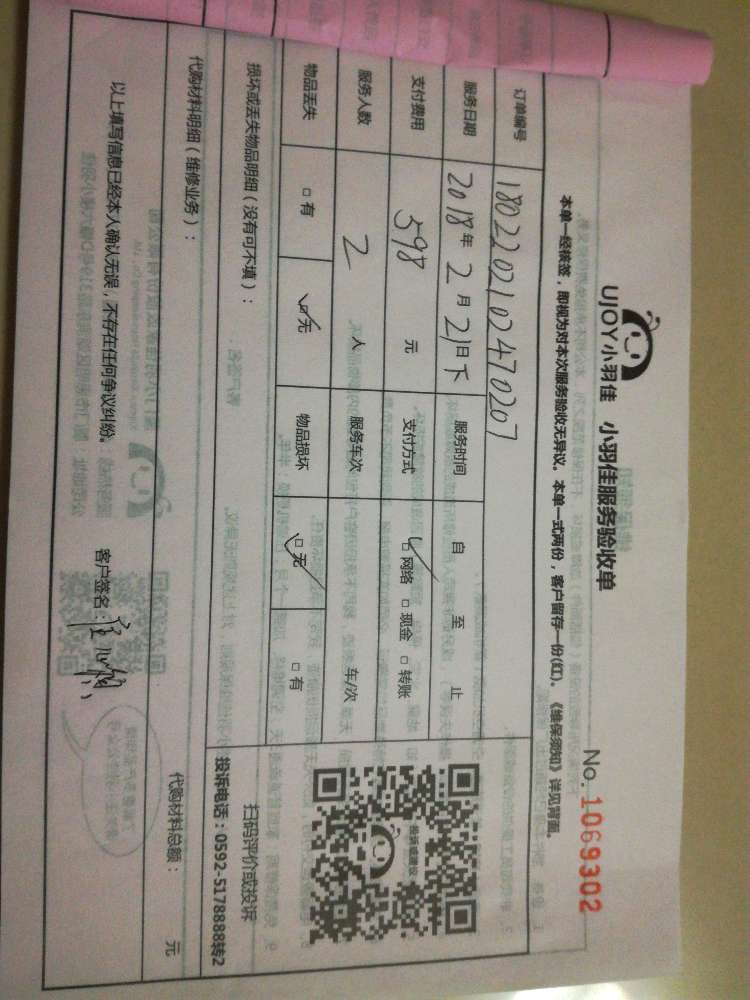 UJOY小羽佳 小羽佳服务验收单
No. 1069302
本单一经核签，即视为对本次服务验收无异议。本单一式两份，客户留存一份(红)。《维保须知》详见背面。
订单编号 1802202102470207
服务日期 2018年2月21日下 服务时间 自 至 止
支付费用 598 元 支付方式 ☑网络 □现金 □转账
服务人数 2 人 服务车次 车/次
物品丢失 □有 ☑无 物品损坏 ☑无 □有
损坏或丢失物品明细（没有可不填）：
投诉或建议
扫码评价或投诉
投诉电话：0592-5178888转2
代购材料明细（维修业务）： 代购材料总额： 元
以上填写信息已经本人确认无误，不存在任何争议纠纷。 客户签名：